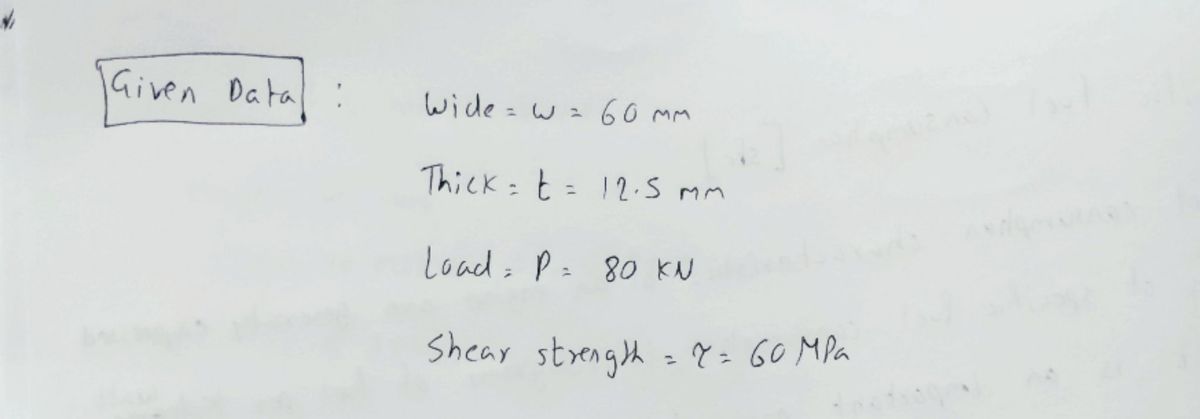 Given Data :
Wide = w = 60 mm
Thick = t = 12.5 mm
Load = P = 80 KN
Shear strength = τ = 60 MPa